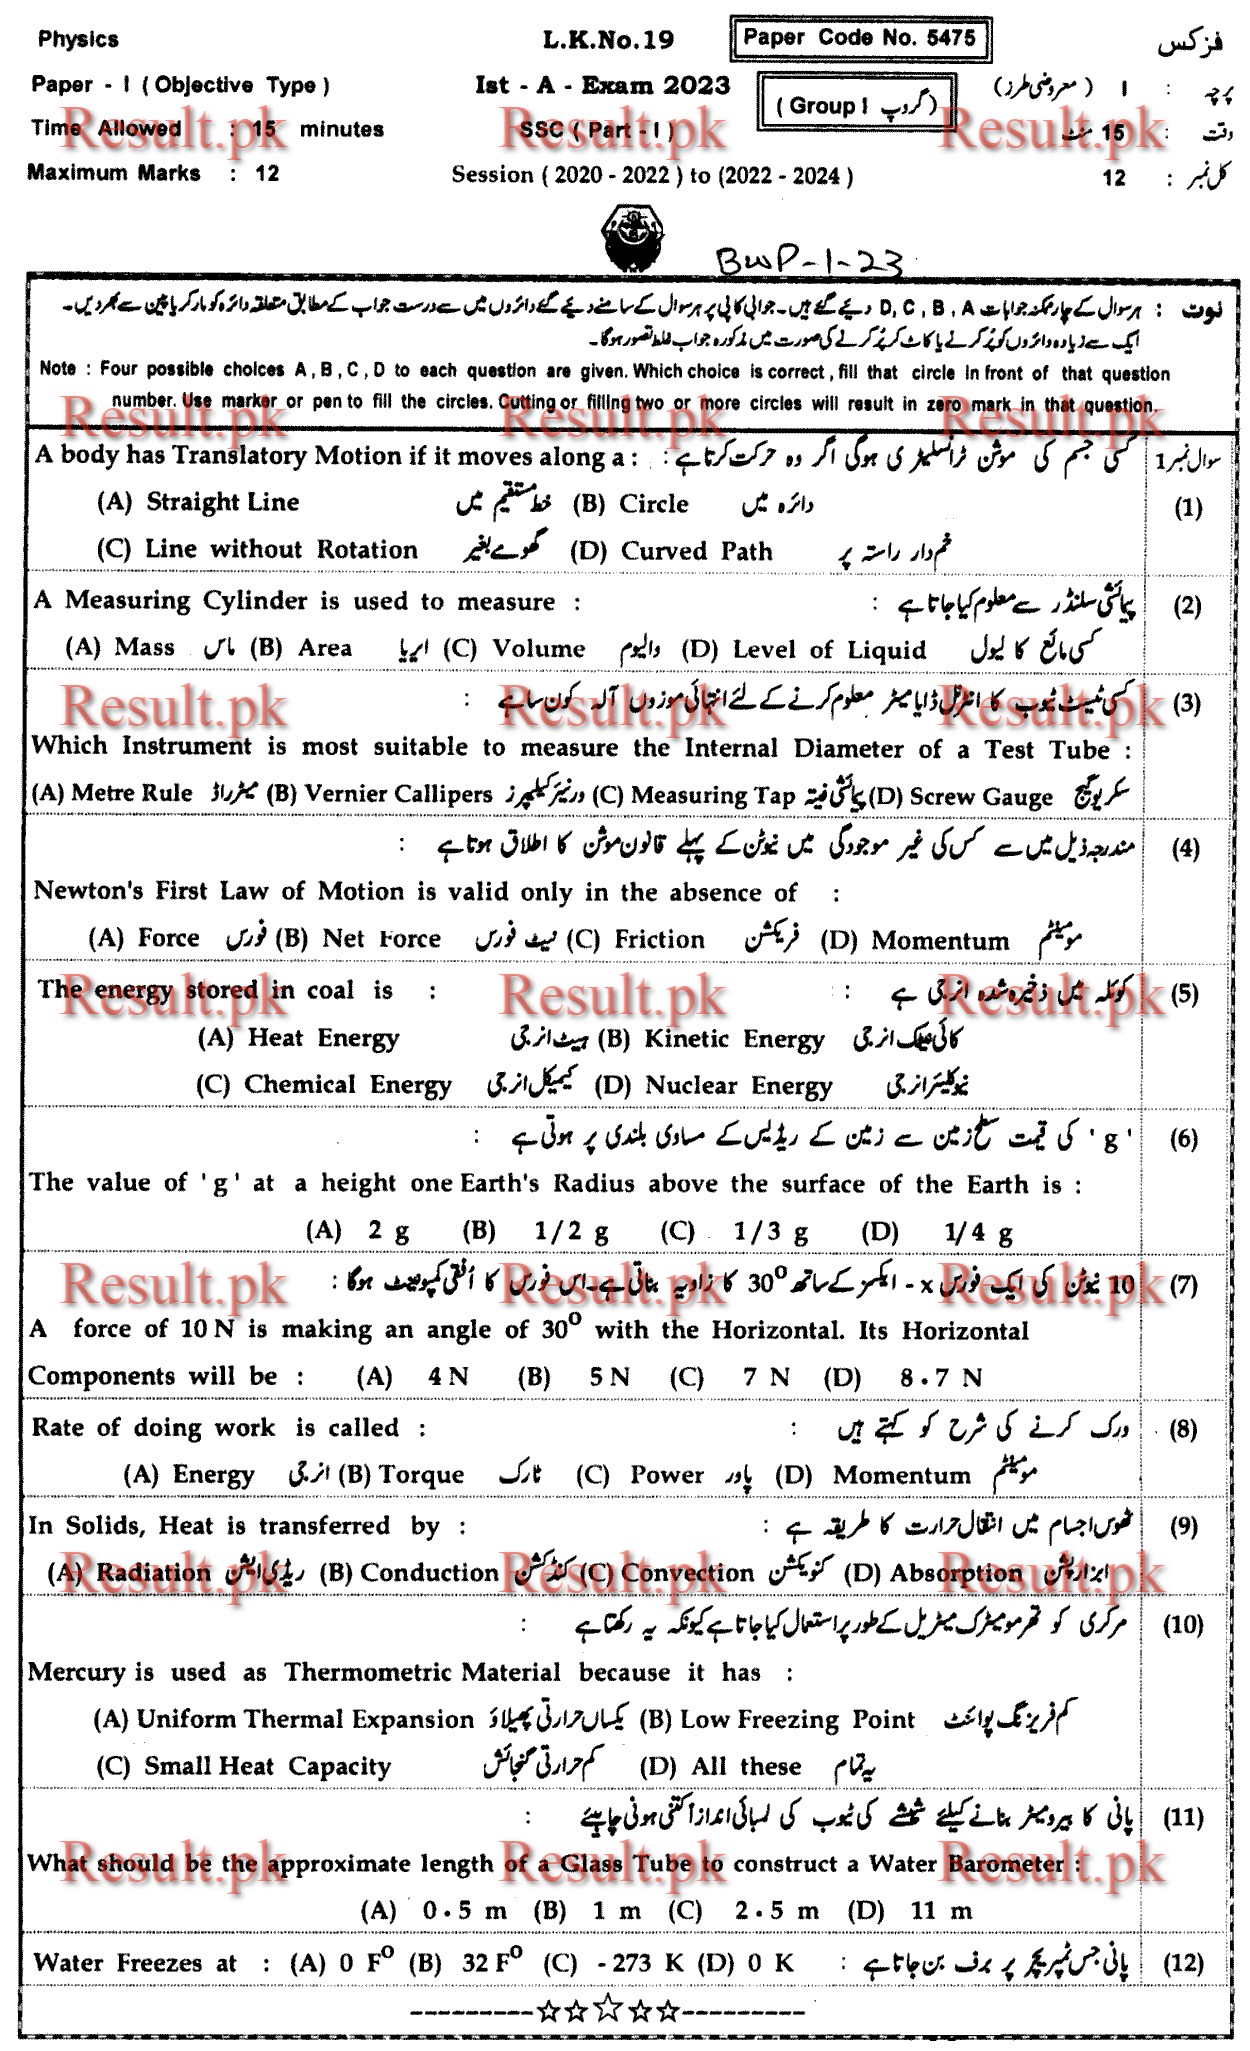 Physics L.K.No.19 Paper Code No. 5475 فزکس
Paper - I ( Objective Type ) Ist - A - Exam 2023 ( Group I گروپ ) پرچہ : I ( معروضی طرز )
Time Allowed : 15 minutes SSC ( Part - I ) وقت : 15 منٹ
Maximum Marks : 12 Session ( 2020 - 2022 ) to (2022 - 2024 ) کل نمبر : 12
BWP-1-23
نوٹ : ہر سوال کے چار ممکنہ جوابات D, C , B , A دیئے گئے ہیں۔ جوابی کاپی پر ہر سوال کے سامنے دیئے گئے دائروں میں سے درست جواب کے مطابق متعلقہ دائرہ کو مارکر یا پین سے بھر دیں۔
ایک سے زیادہ دائروں کو پُر کرنے یا کاٹ کر پُر کرنے کی صورت میں مذکورہ جواب غلط تصور ہوگا۔
Note : Four possible choices A , B , C , D to each question are given. Which choice is correct , fill that circle in front of that question
number. Use marker or pen to fill the circles. Cutting or filling two or more circles will result in zero mark in that question.
A body has Translatory Motion if it moves along a : کسی جسم کی موشن ٹرانسلیٹری ہوگی اگر وہ حرکت کرتا ہے : سوال نمبر 1
(A) Straight Line خط مستقیم میں (B) Circle دائرہ میں (1)
(C) Line without Rotation گھومے بغیر (D) Curved Path خم دار راستہ پر
A Measuring Cylinder is used to measure : پیمائشی سلنڈر سے معلوم کیا جاتا ہے : (2)
(A) Mass ماس (B) Area ایریا (C) Volume والیوم (D) Level of Liquid کسی مائع کا لیول
کسی ٹیسٹ ٹیوب کا انٹرنل ڈایا میٹر معلوم کرنے کے لئے انتہائی موزوں آلہ کون سا ہے : (3)
Which Instrument is most suitable to measure the Internal Diameter of a Test Tube :
(A) Metre Rule میٹر راڈ (B) Vernier Callipers ورنیئر کیلیپرز (C) Measuring Tap پیمائشی فیتہ (D) Screw Gauge سکریو گیج
مندرجہ ذیل میں سے کس کی غیر موجودگی میں نیوٹن کے پہلے قانون موشن کا اطلاق ہوتا ہے : (4)
Newton's First Law of Motion is valid only in the absence of :
(A) Force فورس (B) Net Force نیٹ فورس (C) Friction فریکشن (D) Momentum مومینٹم
The energy stored in coal is : کوئلہ میں ذخیرہ شدہ انرجی ہے : (5)
(A) Heat Energy ہیٹ انرجی (B) Kinetic Energy کائی نیٹک انرجی
(C) Chemical Energy کیمیکل انرجی (D) Nuclear Energy نیوکلیئر انرجی
' g ' کی قیمت سطح زمین سے زمین کے ریڈیس کے مساوی بلندی پر ہوتی ہے : (6)
The value of ' g ' at a height one Earth's Radius above the surface of the Earth is :
(A) 2 g (B) 1/2 g (C) 1/3 g (D) 1/4 g
10 نیوٹن کی ایک فورس x - ایکسز کے ساتھ 30⁰ کا زاویہ بناتی ہے۔ اس فورس کا اُفقی کمپونینٹ ہوگا : (7)
A force of 10 N is making an angle of 30⁰ with the Horizontal. Its Horizontal
Components will be : (A) 4 N (B) 5 N (C) 7 N (D) 8.7 N
Rate of doing work is called : ورک کرنے کی شرح کو کہتے ہیں : (8)
(A) Energy انرجی (B) Torque ٹارک (C) Power پاور (D) Momentum مومینٹم
In Solids, Heat is transferred by : ٹھوس اجسام میں انتقال حرارت کا طریقہ ہے : (9)
(A) Radiation ریڈی ایشن (B) Conduction کنڈکشن (C) Convection کنویکشن (D) Absorption ابزارپشن
مرکری کو تھرمومیٹرک میٹریل کے طور پر استعمال کیا جاتا ہے کیونکہ یہ رکھتا ہے : (10)
Mercury is used as Thermometric Material because it has :
(A) Uniform Thermal Expansion یکساں حرارتی پھیلاؤ (B) Low Freezing Point کم فریزنگ پوائنٹ
(C) Small Heat Capacity کم حرارتی گنجائش (D) All these یہ تمام
پانی کا بیرومیٹر بنانے کیلئے شیشے کی ٹیوب کی لمبائی اندازاً کتنی ہونی چاہیئے : (11)
What should be the approximate length of a Glass Tube to construct a Water Barometer :
(A) 0.5 m (B) 1 m (C) 2.5 m (D) 11 m
Water Freezes at : (A) 0 F⁰ (B) 32 F⁰ (C) - 273 K (D) 0 K پانی جس ٹمپریچر پر برف بن جاتا ہے : (12)
---------☆☆☆☆☆---------
Result.pk